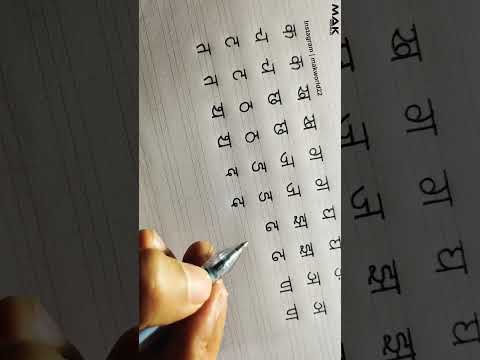 MAK
Instagram | makworld22
क क ख ख ग ग घ घ
च च छ छ ज ज झ झ ञ ञ
ट ट ठ ठ ड ड ढ ढ ण ण
त त थ थ द द
ख ग ग घ घ
ज ज झ झ